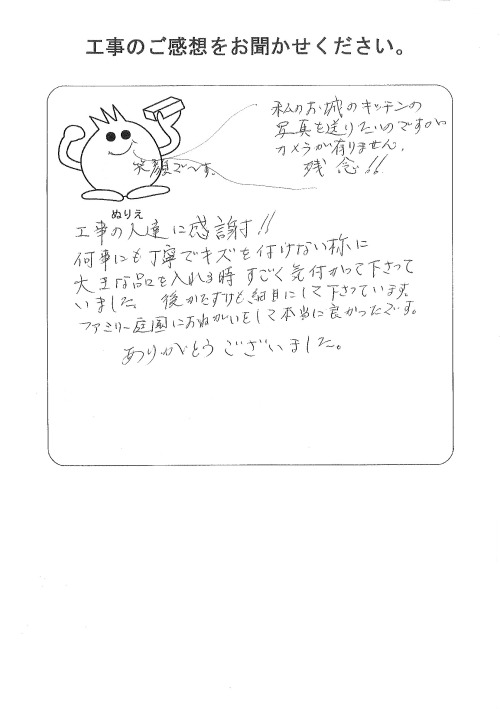 工事のご感想をお聞かせください。
私のお城のキッチンの
写真を送りたいのですが
カメラが有りません。
残念!!
笑顔で〜す。
ぬりえ
工事の人達に感謝!!
何事にも丁寧でキズを付けない様に
大王な品を入れる時すごく気付かって下さって
いました。後かたずけも綺目にして下さっています。
ファミリー庭園におねがいをして本当に良かったです。
ありがとうございました。